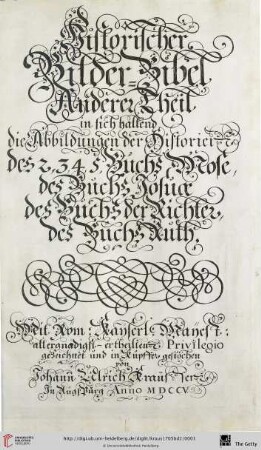 Historischer
Bilder-Bibel
Anderer Theil
in sich haltend
die Abbildungen der Historien
des 2. 3. 4. 5. Buchs Mose,
des Buchs Josuæ
des Buchs der Richter,
des Buchs Ruth.
Mit Röm: Kayserl: Mayest:
allergnädigst-ertheilten Privilegio
gezeichnet und in Kupfer gestochen
von
Johann Ulrich Krauß
In Augspurg Anno MDCCV
UNIVERSITÄTS-
BIBLIOTHEK
HEIDELBERG
http://digi.ub.uni-heidelberg.de/diglit/kraus1705bd2/0001
© Universitätsbibliothek Heidelberg
The Getty